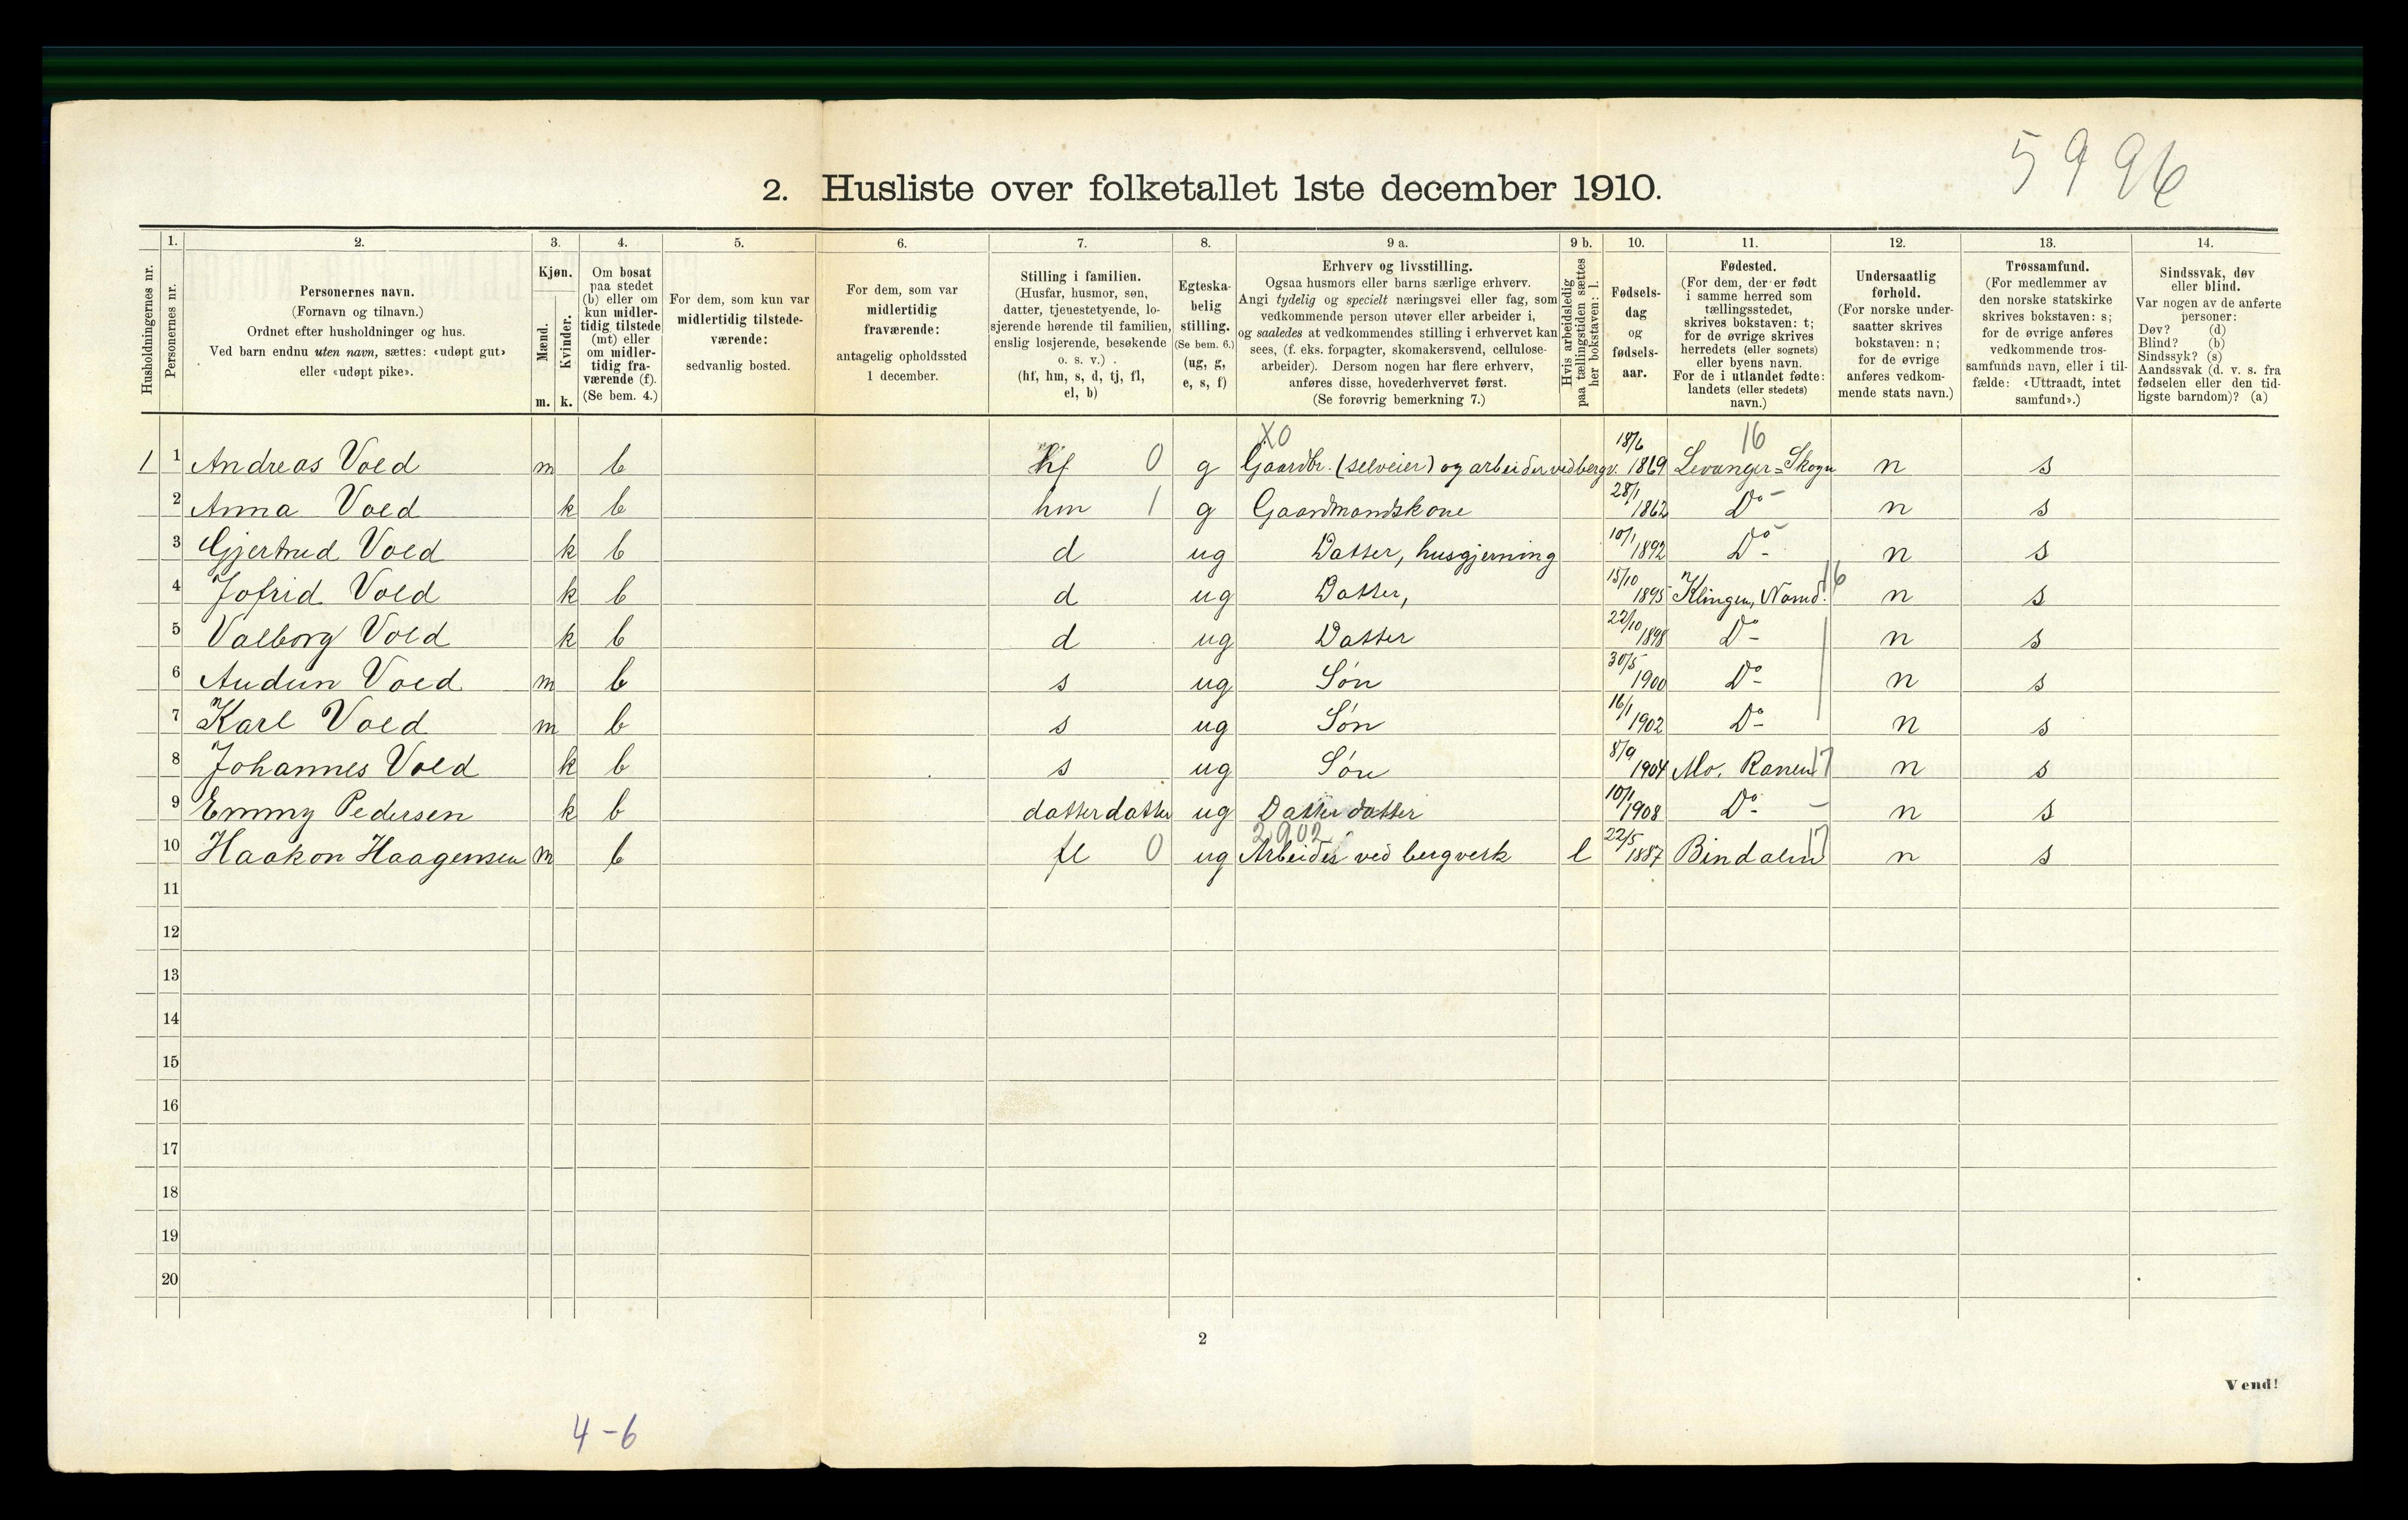 5996
2. Husliste over folketallet 1ste december 1910.
Husholdningernes nr.
1. Personernes nr.
2. Personernes navn. (Fornavn og tilnavn.) Ordnet efter husholdninger og hus. Ved barn endnu uten navn, sættes: «udøpt gut» eller «udøpt pike».
3. Kjøn. Mænd. m. Kvinder. k.
4. Om bosat paa stedet (b) eller om kun midlertidig tilstede (mt) eller om midlertidig fraværende (f). (Se bem. 4.)
5. For dem, som kun var midlertidig tilstedeværende: sedvanlig bosted.
6. For dem, som var midlertidig fraværende: antagelig opholdssted 1 december.
7. Stilling i familien. (Husfar, husmor, søn, datter, tjenestetyende, losjerende hørende til familien, enslig losjerende, besøkende o. s. v.) (hf, hm, s, d, tj, fl, el, b)
8. Egteskabelig stilling. (Se bem. 6.) (ug, g, e, s, f)
9 a. Erhverv og livsstilling. Ogsaa husmors eller barns særlige erhverv. Angi tydelig og specielt næringsvei eller fag, som vedkommende person utøver eller arbeider i, og saaledes at vedkommendes stilling i erhvervet kan sees, (f. eks. forpagter, skomakersvend, cellulosearbeider). Dersom nogen har flere erhverv, anføres disse, hovederhvervet først. (Se forøvrig bemerkning 7.)
9 b. Hvis arbeidsledig paa tællingstiden sættes her bokstaven: l.
10. Fødselsdag og fødselsaar.
11. Fødested. (For dem, der er født i samme herred som tællingsstedet, skrives bokstaven: t; for de øvrige skrives herredets (eller sognets) eller byens navn. For de i utlandet fødte: landets (eller stedets) navn.)
12. Undersaatlig forhold. (For norske undersaatter skrives bokstaven: n; for de øvrige anføres vedkommende stats navn.)
13. Trossamfund. (For medlemmer av den norske statskirke skrives bokstaven: s; for de øvrige anføres vedkommende trossamfunds navn, eller i tilfælde: «Uttraadt, intet samfund».)
14. Sindssvak, døv eller blind. Var nogen av de anførte personer: Døv? (d) Blind? (b) Sindssyk? (s) Aandssvak (d. v. s. fra fødselen eller den tidligste barndom)? (a)
X0 16
1 1 Andreas Vold m b hf 0 g Gaardbr. (selveier) og arbeider ved bergv. 18/6 1869 Levanger=Skogn n s
2 Anna Vold k b hm 1 g Gaardmandskone 28/1 1862 Do - n s
3 Gjertrud Vold k b d ug Datter, husgjerning 10/1 1892 Do - n s
4 Jofrid Vold k b d ug Datter, 15/10 1895 Klingen, Namd. 16 n s
5 Valborg Vold k b d ug Datter 22/10 1898 Do n s
6 Audun Vold m b s ug Søn 30/5 1900 Do n s
7 Karl Vold m b s ug Søn 16/1 1902 Do n s
8 Johannes Vold k b s ug Søn 8/9 1904 Mo, Ranen 17 n s
9 Emmy Pedersen k b datterdatter ug Datterdatter 10/1 1908 Do - n s
2902
10 Haakon Haagensen m b fl 0 ug Arbeider ved bergverk l 22/5 1887 Bindalen 17 n s
11
12
13
14
15
16
17
18
19
20
2
Vend!
4-6